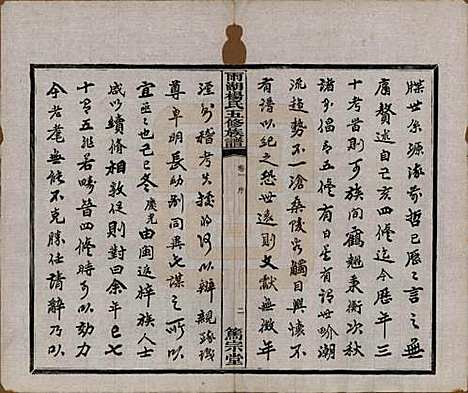 牒世系源流前哲已歷歷言之無
庸贅述自己亥四修迄今歷年三
十考前可族間鶴翹秉衡次秋
諸公倡五修有日矣無如世畛潮
流趨勢不一滄桑陵谷觸目興懷不
有譜以紀之恐世遠則文獻無徵年
雨湖楊氏五修族譜
卷 序
二
雋宗堂
湮則稽考失據將何以辨親疏識
尊卑明長幼別同異也謀之所以
宜亟亟也己巳冬慶光由閩返梓族人士
咸以續修相敦促則對曰余年已七
十有五非若疇昔四修時可以効力
今老耄無能不克勝任請辭乃以